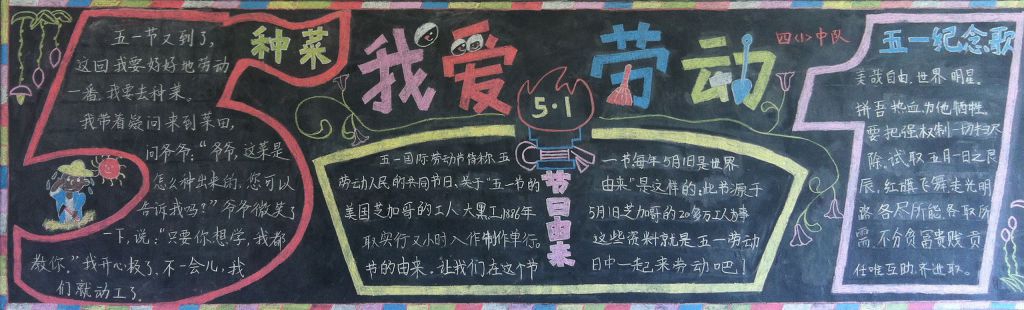 种菜
五一节又到了,
这回我要好好地劳动
一番。我要去种菜。
我带着疑问来到菜田,
问爷爷:“爷爷,这菜是
怎么种出来的,您可以
告诉我吗?”爷爷微笑了
一下,说:“只要你想学,我都
教你。”我开心极了,不一会儿,我
们就动工了.
我爱劳动
四〈1〉中队
5·1
节日由来
五一国际劳动节
劳动人民的共同节日。关于“五一节的
美国芝加哥的工人大黑工,1886年
取实行又小时入作制作单行。
节的由来。让我们在这个节
一书每年5月1日是世界
由来”是这样的:此节源于
5月1日芝加哥的20多万工人事
这些资料就是五一劳动
日中一起来劳动吧!
五一纪念歌
美哉自由,世界明星。
拼吾热血为他牺牲,
要把强权制一切扫
除,试取五月一日之良
辰,红旗飞舞走光明
路各尽所能各取所
需,不分贫富贵贱责
任唯互助,齐进取。